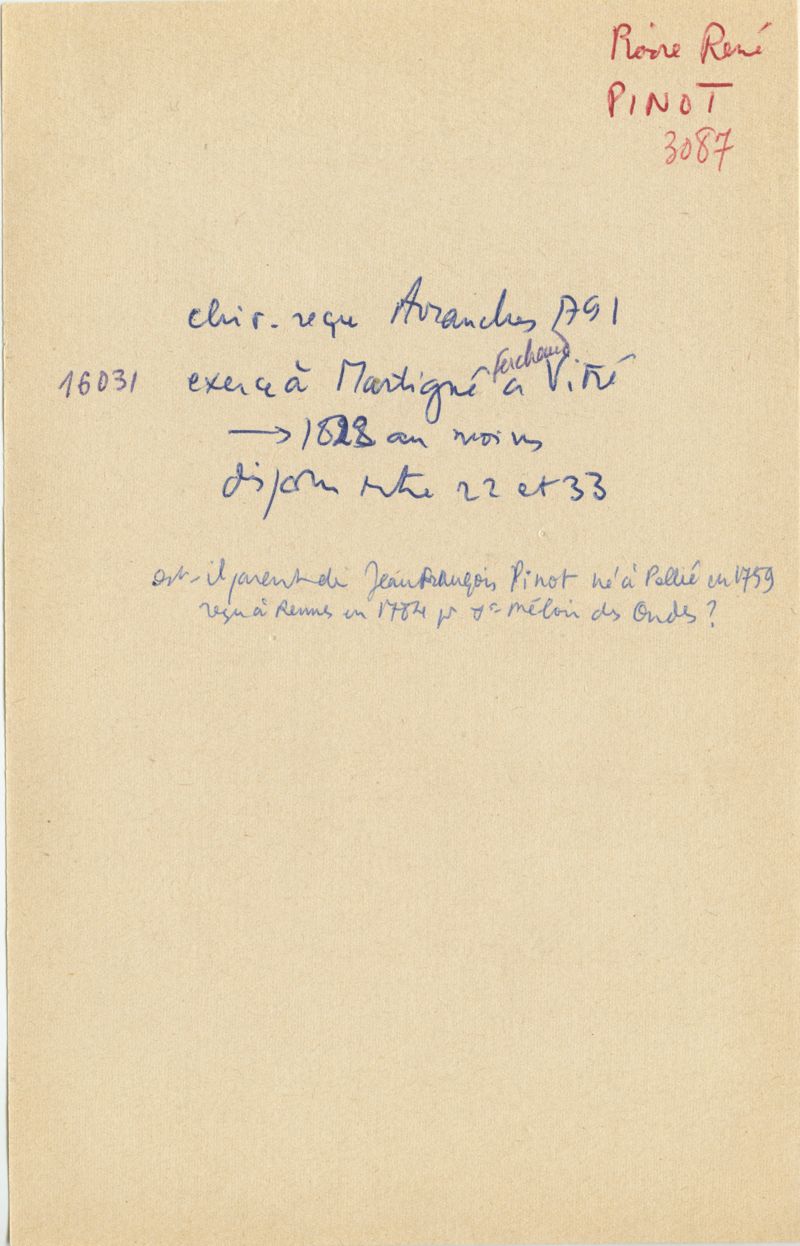 Pierre René
PINOT
3087
chir. reçu Avranches 1791
Ferchaud
16031 exerce à Martigné à Vitré
→ 1828 au moins
disparu entre 22 et 33
est-il parent de Jean François Pinot né à en 1759
reçu à Rennes en 1784 pr St Méloir des Ondes ?